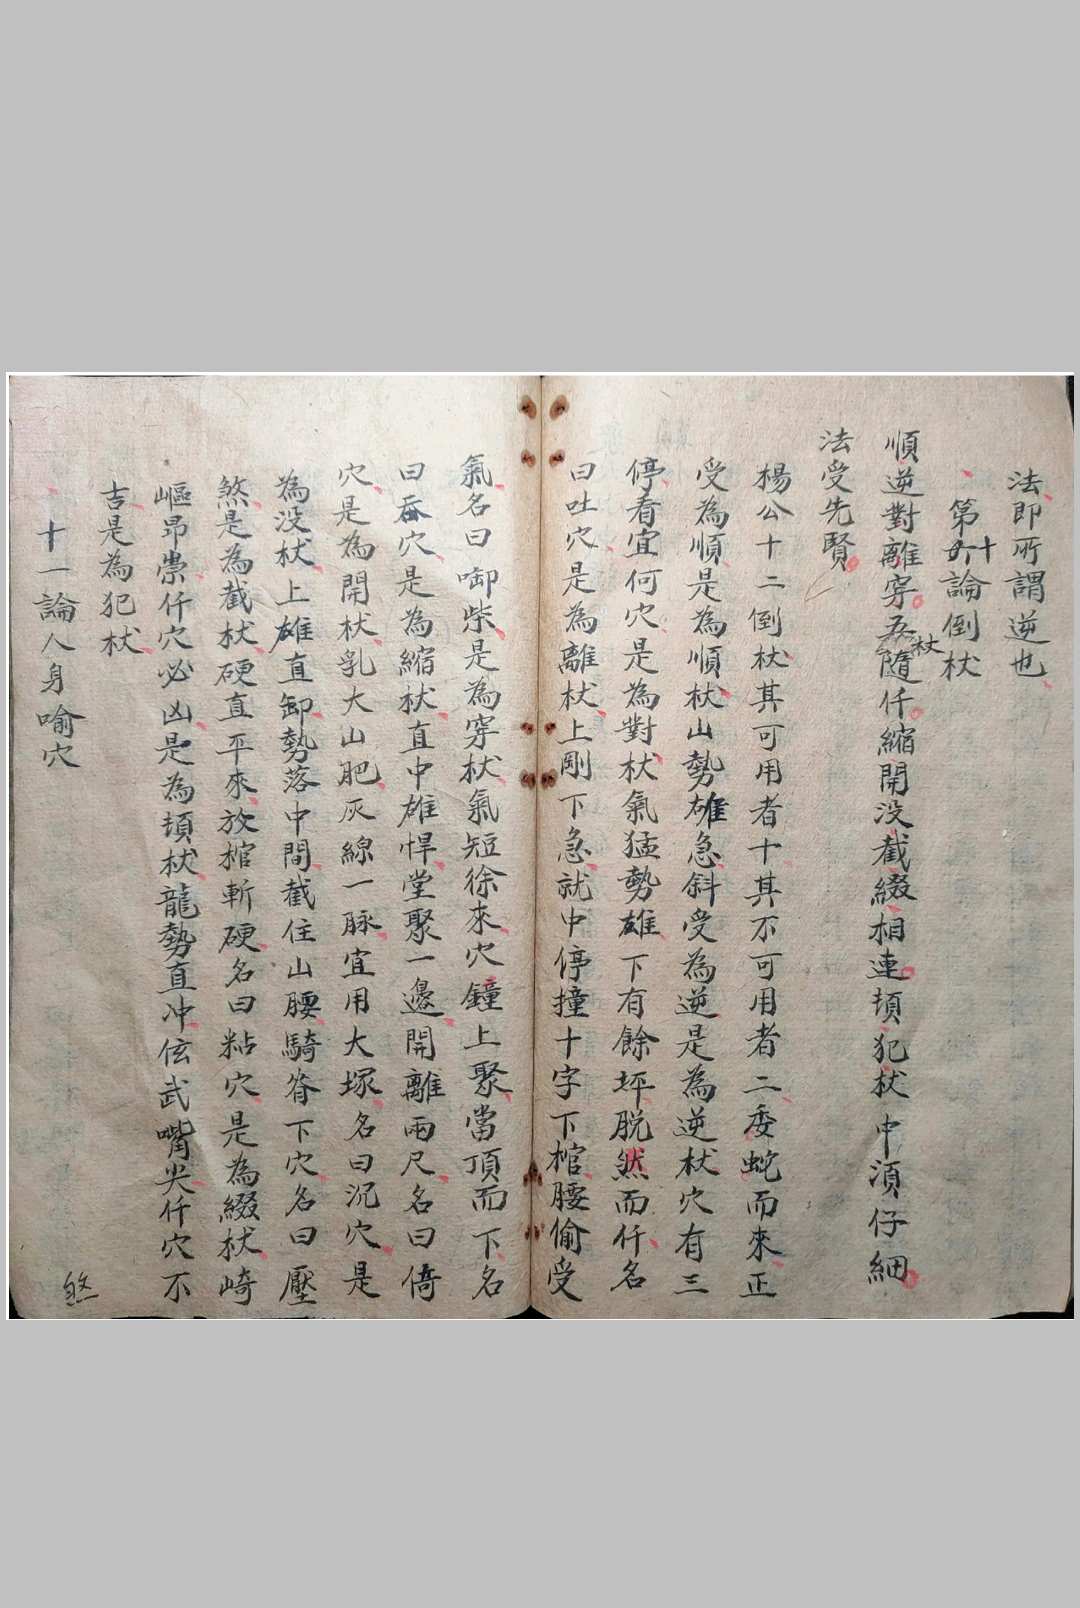 法即所謂逆也
第十論倒杖
順逆對離穿杖隨仟縮開没截綴相連頓犯杖中須仔細
法受先賢
楊公十二倒杖其可用者十其不可用者二委蛇而來正
受為順是為順杖山勢雄急斜受為逆是為逆杖穴有三
停看宜何穴是為對杖氣猛勢雄下有餘坪脱然而仟名
曰吐穴是為離杖上剛下急就中停撞十字下棺腰偷受
氣名曰啣柴是為穿杖氣短徐來穴鐘上聚當頂而下名
曰吞穴是為縮杖直中雄悍堂聚一邊開離兩尺名曰倚
穴是為開杖乳大山肥灰線一脉宜用大塚名曰沉穴是
為没杖上雄直卸勢落中間截住山腰騎脊下穴名曰壓
煞是為截杖硬直平來放棺斬硬名曰粘穴是為綴杖崎
嶇昂崇仟穴必凶是為頓杖龍勢直冲佉武嘴尖仟穴不
吉是為犯杖
十一論人身喻穴
煞